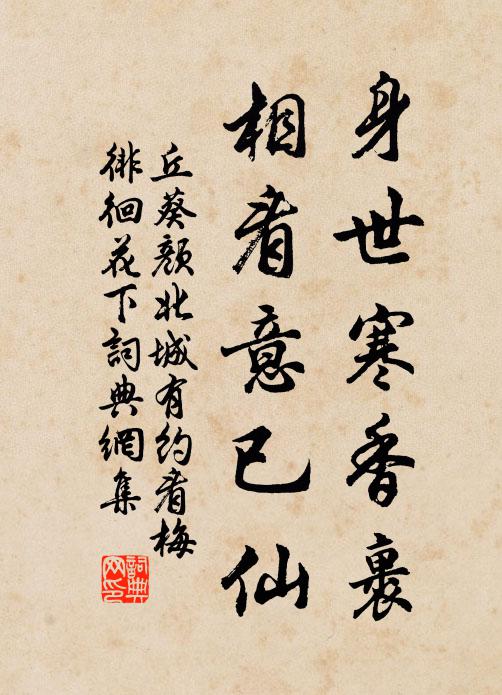 身世寒香裏
相看意已仙
丘葵顏北城有約看梅
徘徊花下詞典網集
詞典
网印